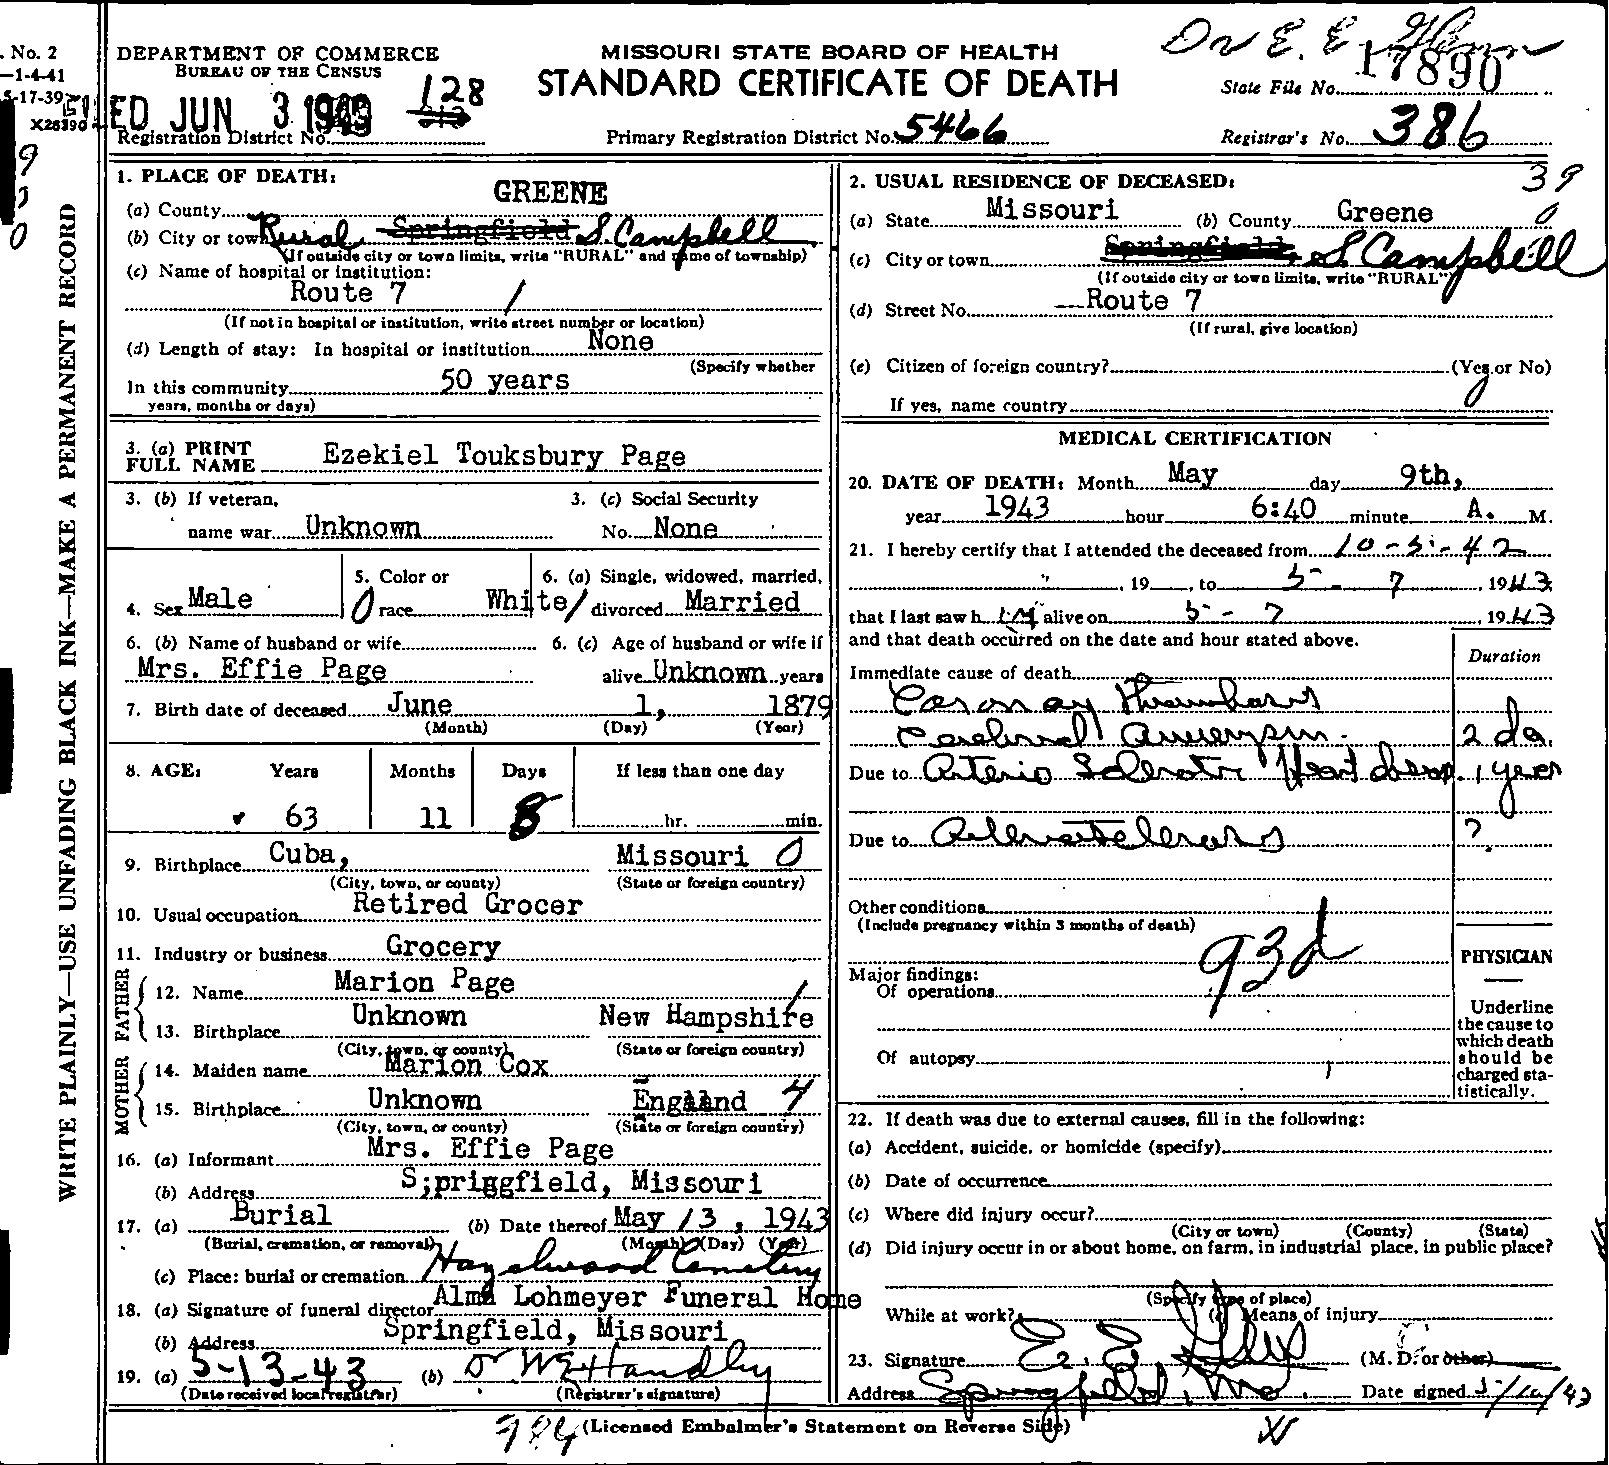 . No. 2
—1-4-41
5-17-39
X28390
DEPARTMENT OF COMMERCE
BUREAU OF THE CENSUS
MISSOURI STATE BOARD OF HEALTH
STANDARD CERTIFICATE OF DEATH
Dr E. E. Glenn
State File No. 17890
ED JUN 3 1943
128
Registration District No.
Primary Registration District No. 5466
Registrar's No. 386
WRITE PLAINLY—USE UNFADING BLACK INK—MAKE A PERMANENT RECORD
1. PLACE OF DEATH:
(a) County GREENE
(b) City or town Rural Springfield S. Campbell
(If outside city or town limits, write "RURAL" and name of township)
(c) Name of hospital or institution:
Route 7 /
(If not in hospital or institution, write street number or location)
(d) Length of stay: In hospital or institution None
(Specify whether
In this community 50 years
years, months or days)
3. (a) PRINT
FULL NAME Ezekiel Touksbury Page
3. (b) If veteran,
name war Unknown
3. (c) Social Security
No. None
4. Sex Male
5. Color or
race White
6. (a) Single, widowed, married,
divorced Married
6. (b) Name of husband or wife
Mrs. Effie Page
6. (c) Age of husband or wife if
alive Unknown years
7. Birth date of deceased June 1, 1879
(Month) (Day) (Year)
8. AGE: Years Months Days If less than one day
63 11 8 hr. min.
9. Birthplace Cuba, Missouri 0
(City, town, or county) (State or foreign country)
10. Usual occupation Retired Grocer
11. Industry or business Grocery
FATHER
12. Name Marion Page
13. Birthplace Unknown New Hampshire
(City, town, or county) (State or foreign country)
MOTHER
14. Maiden name Marion Cox
15. Birthplace Unknown England 4
(City, town, or county) (State or foreign country)
16. (a) Informant Mrs. Effie Page
(b) Address S;priggfield, Missouri
17. (a) Burial (b) Date thereof May 13, 1943
(Burial, cremation, or removal) (Month) (Day) (Year)
(c) Place: burial or cremation Hazelwood Cemetery
18. (a) Signature of funeral director Alma Lohmeyer Funeral Home
(b) Address Springfield, Missouri
19. (a) 5-13-43 (b) Dr W E Handley
(Date received local registrar) (Registrar's signature)
2. USUAL RESIDENCE OF DECEASED: 39
(a) State Missouri (b) County Greene 0
(c) City or town Springfield, S. Campbell
(If outside city or town limits, write "RURAL")
(d) Street No. Route 7
(If rural, give location)
(e) Citizen of foreign country? (Yes or No)
If yes, name country 0
MEDICAL CERTIFICATION
20. DATE OF DEATH: Month May day 9th,
year 1943 hour 6:40 minute A. M.
21. I hereby certify that I attended the deceased from 10-5-42
, 19 , to 5-7, 1943
that I last saw h im alive on 5-7, 1943
and that death occurred on the date and hour stated above.
Duration
Immediate cause of death
Coronary Thrombosis
Cerebral Aneurysm. 2 da.
Due to Arterio Sclerotic Heart disease. 1 year
Due to ?
Other conditions
(Include pregnancy within 3 months of death)
93d
Major findings:
Of operations
Of autopsy
PHYSICIAN
Underline
the cause to
which death
should be
charged sta-
tistically.
22. If death was due to external causes, fill in the following:
(a) Accident, suicide, or homicide (specify)
(b) Date of occurrence
(c) Where did injury occur?
(City or town) (County) (State)
(d) Did injury occur in or about home, on farm, in industrial place, in public place?
(Specify type of place)
While at work? (e) Means of injury
23. Signature E. E. Glenn (M. D. or other)
Address Springfield, Mo. Date signed 5/10/43
984 (Licensed Embalmer's Statement on Reverse Side)